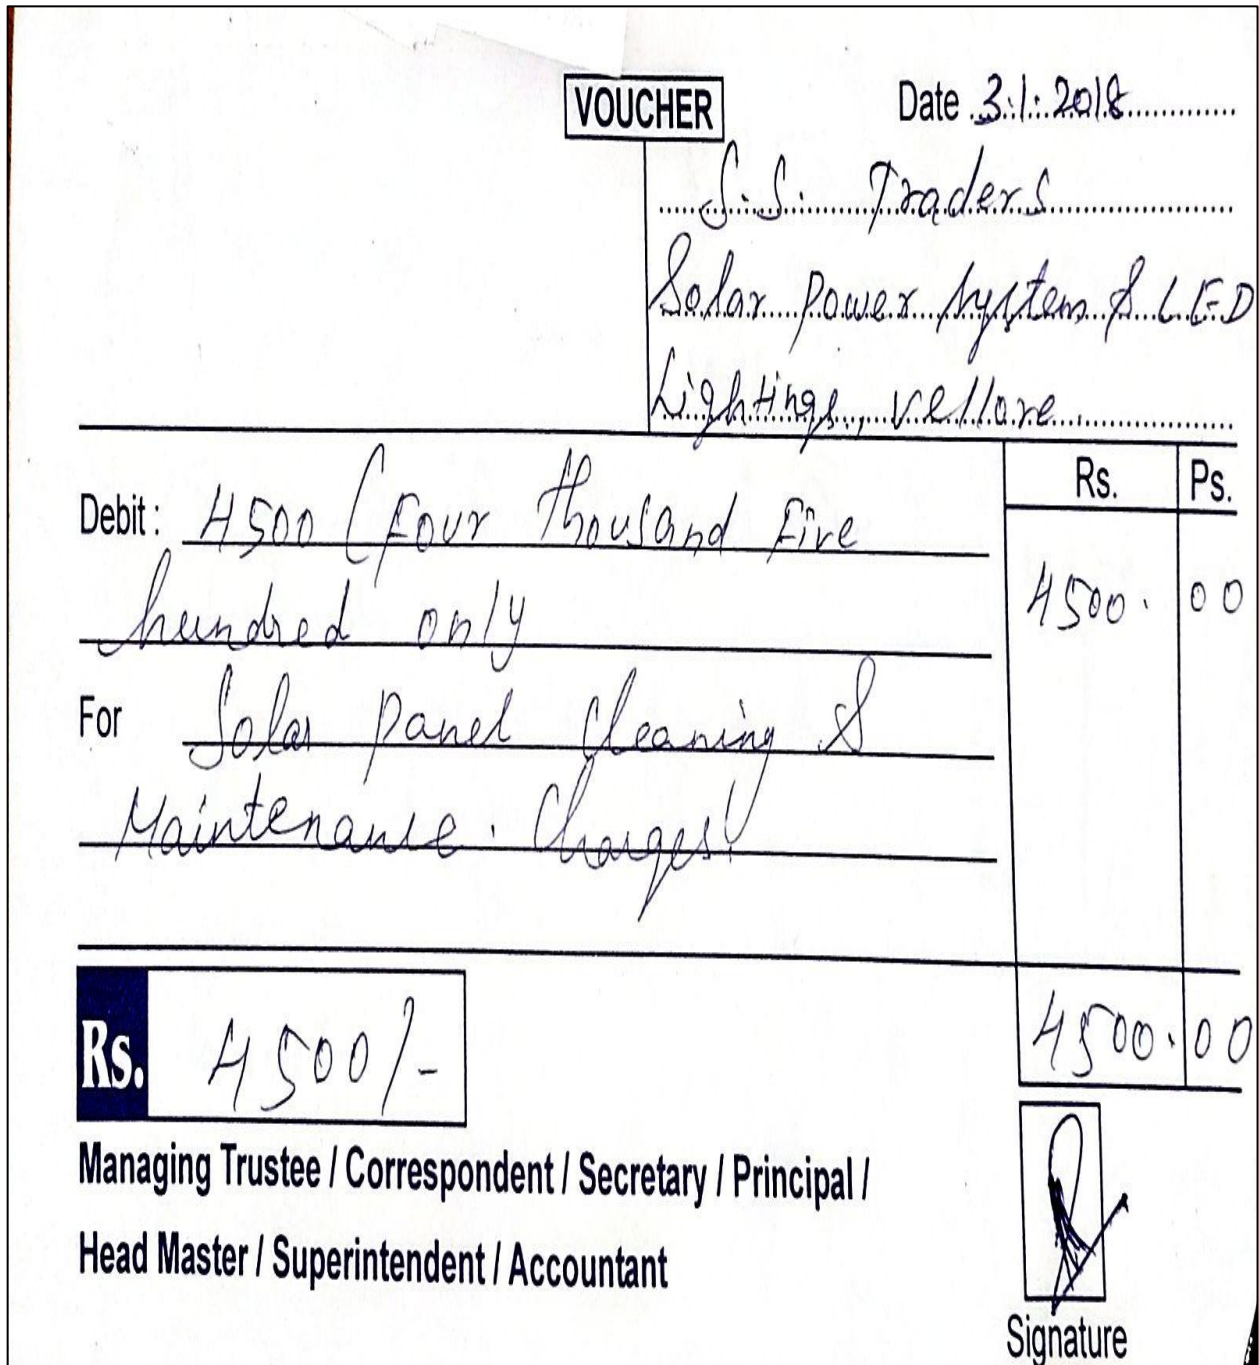 VOUCHER
Date 3.1.2018
S.S. Traders
Solar Power System & LED
Lightings, Vellore
Rs. Ps.
Debit : 4500 (Four Thousand Five
hundred only
4500. 00
For Solar Panel Cleaning &
Maintenance. Charges!
4500.00
Rs. 4500/-
Managing Trustee / Correspondent / Secretary / Principal /
Head Master / Superintendent / Accountant
Signature